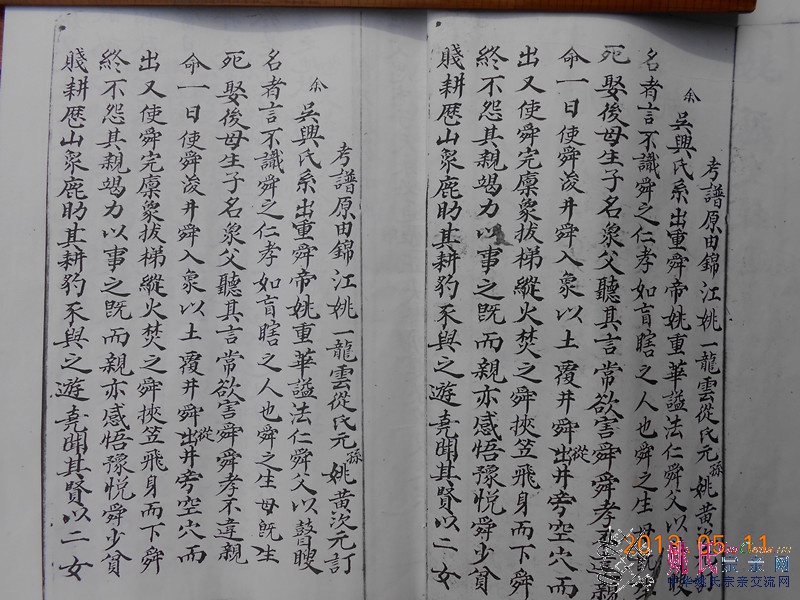 考譜原由錦江姚一龍雲從氏元孫姚黃次元訂
余吳興氏系出重舜帝姚重華謚法仁舜父以瞍
名者言不識舜之仁孝如盲瞎之人也舜之生母既生
死娶後母生子名象父聽其言常欲害舜舜孝不違親
命一日使舜浚井舜入象以土覆井舜從出井旁空穴而
出又使舜完廩象拔梯縱火焚之舜挾笠飛身而下舜
終不怨其親竭力以事之既而親亦感悟豫悅舜少貧
賤耕歷山象鹿助其耕豹豕與之遊堯聞其賢以二女
考譜原由錦江姚一龍雲從氏元孫姚黃次元訂
余吳興氏系出重舜帝姚重華謚法仁舜父以瞽瞍
名者言不識舜之仁孝如盲瞎之人也舜之生母既生
死娶後母生子名象父聽其言常欲害舜舜孝不違親
命一日使舜浚井舜入象以土覆井舜從出井旁空穴而
出又使舜完廩象拔梯縱火焚之舜挾笠飛身而下舜
終不怨其親竭力以事之既而親亦感悟豫悅舜少貧
賤耕歷山象鹿助其耕豹豕與之遊堯聞其賢以二女
2013.05.11
姚氏宗亲网
中华姚氏宗亲交流网